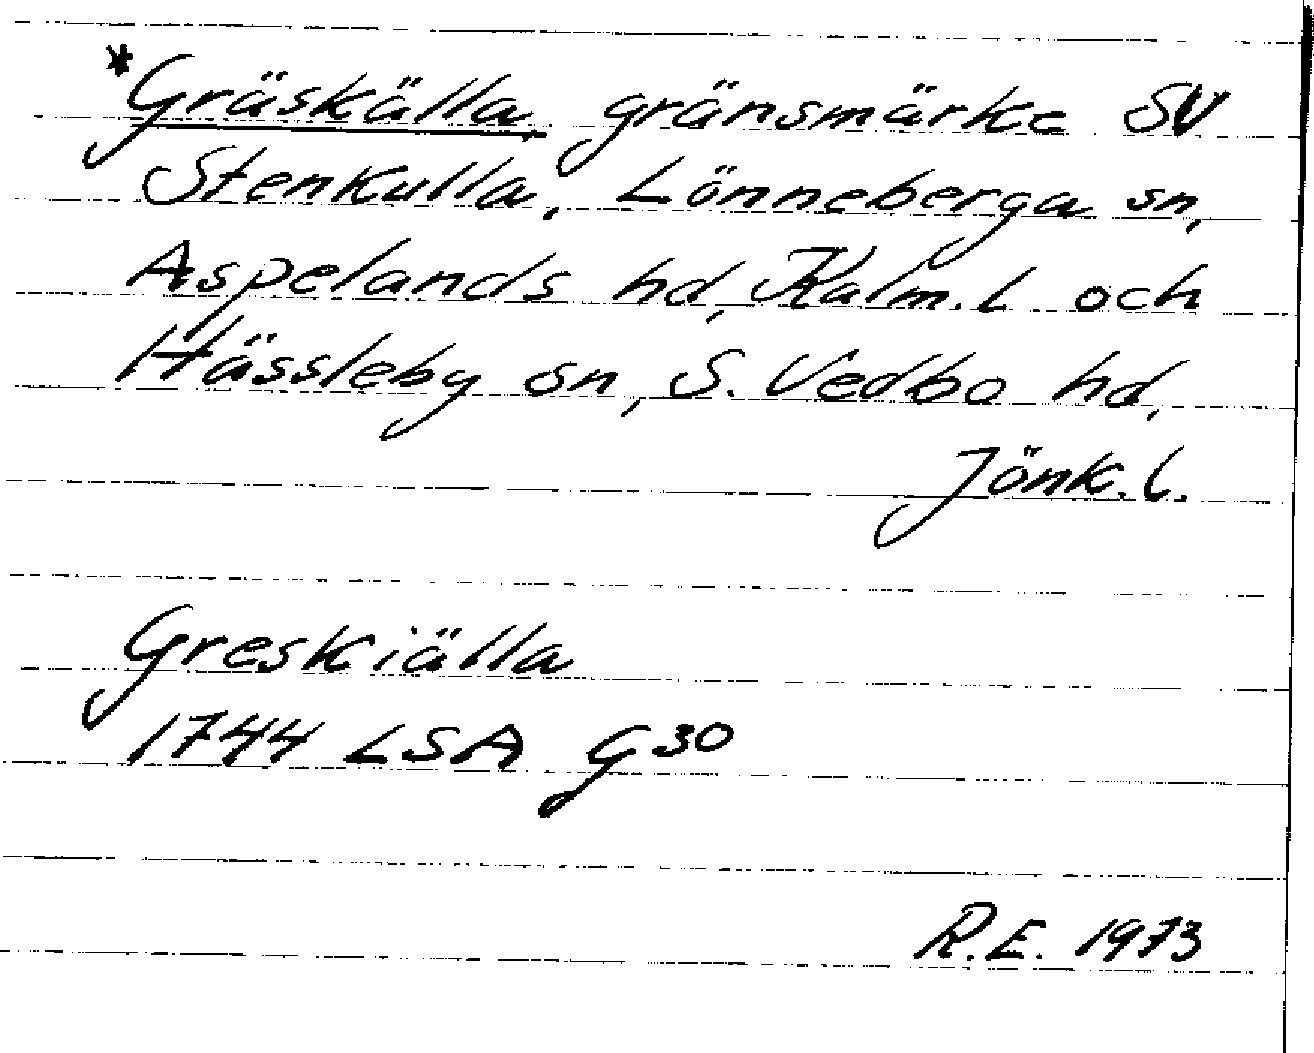 *Gräskälla, gränsmärke SV
Stenkulla, Lönneberga sn,
Aspelands hd, Kalm. l. och
Hässleby sn, S. Vedbo hd,
Jönk. l.
Greskiälla
1744 LSA G30
R.E. 1973